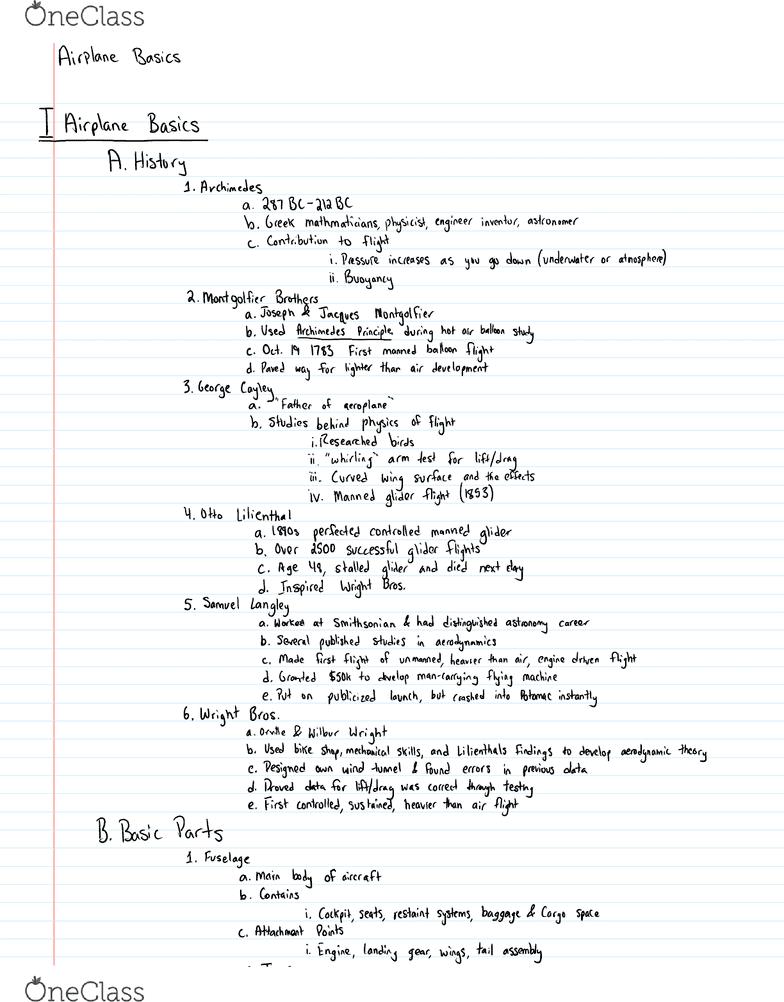 OneClass
Airplane Basics
I Airplane Basics
A. History
1. Archimedes
a. 287 BC - 212 BC
b. Greek mathmaticians, physicist, engineer inventor, astronomer
c. Contribution to flight
i. Pressure increases as you go down (underwater or atmosphere)
ii. Buoyancy
2. Montgolfier Brothers
a. Joseph & Jacques Montgolfier
b. Used Archimedes Principle during hot air balloon study
c. Oct. 19 1783 First manned balloon flight
d. Paved way for lighter than air development
3. George Cayley
a. "Father of aeroplane"
b. Studies behind physics of flight
i. Researched birds
ii. "whirling" arm test for lift/drag
iii. Curved wing surface and the effects
iv. Manned glider flight (1853)
4. Otto Lilienthal
a. 1890s perfected controlled manned glider
b. Over 2500 successful glider flights
c. Age 48, stalled glider and died next day
d. Inspired Wright Bros.
5. Samuel Langley
a. Worked at Smithsonian & had distinguished astronomy career
b. Several published studies in aerodynamics
c. Made first flight of unmanned, heavier than air, engine driven flight
d. Granted $50k to develop man-carrying flying machine
e. Put on publicized launch, but crashed into Potomac instantly
6. Wright Bros.
a. Orville & Wilbur Wright
b. Used bike shop, mechanical skills, and Lilienthals findings to develop aerodynamic theory
c. Designed own wind tunnel & found errors in previous data
d. Proved data for lift/drag was correct through testing
e. First controlled, sustained, heavier than air flight
B. Basic Parts
1. Fuselage
a. Main body of aircraft
b. Contains
i. Cockpit, seats, restraint systems, baggage & Cargo space
c. Attachment Points
i. Engine, landing gear, wings, tail assembly
OneClass